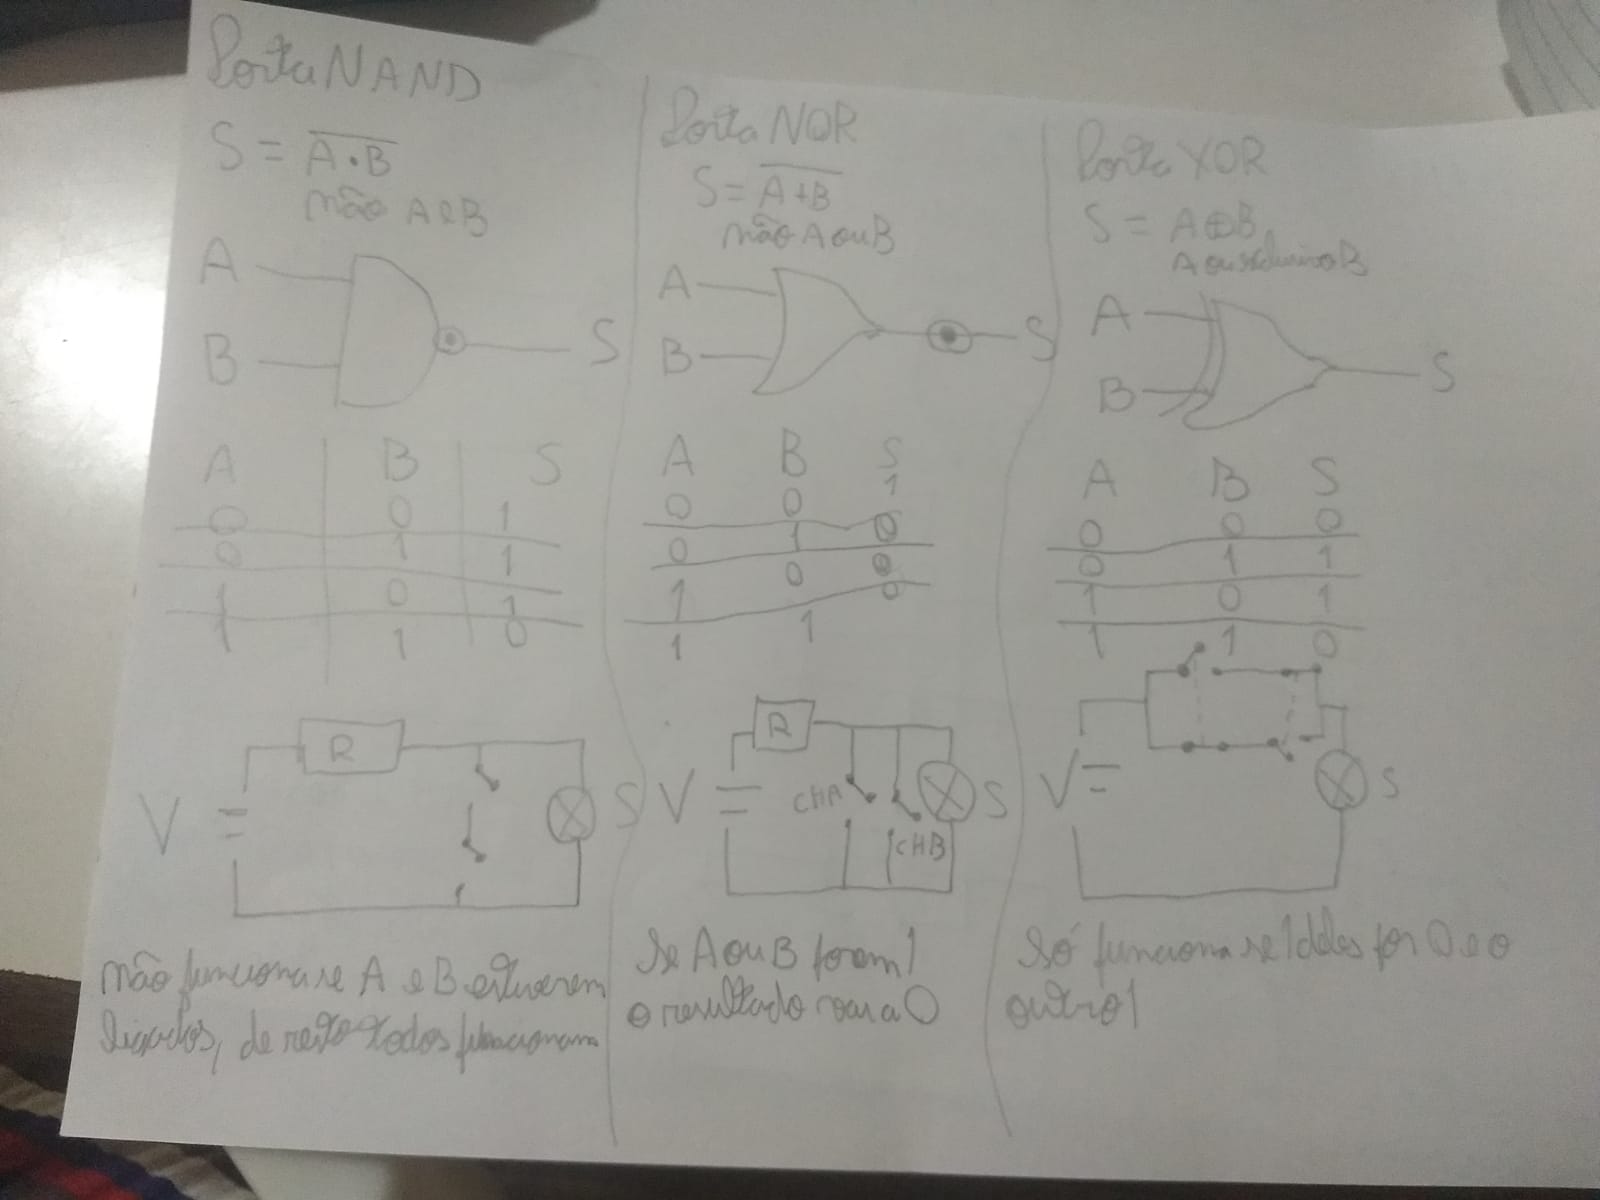 Porta NAND
S = A·B
não A e B
A
B
S
A B S
0 0 1
0 1 1
1 0 1
1 1 0
R
V
S
não funciona se A e B estiverem
ligados, de resto todos funcionam
Porta NOR
S = A+B
não A ou B
A
B
S
A B S
0 0 1
0 1 0
1 0 0
1 1 0
R
V
CHA
CHB
S
Se A ou B forem 1
o resultado será 0
Porta XOR
S = A⊕B
A ou exclusivo B
A
B
S
A B S
0 0 0
0 1 1
1 0 1
1 1 0
V
S
Só funciona se 1 deles for 0 e o
outro 1